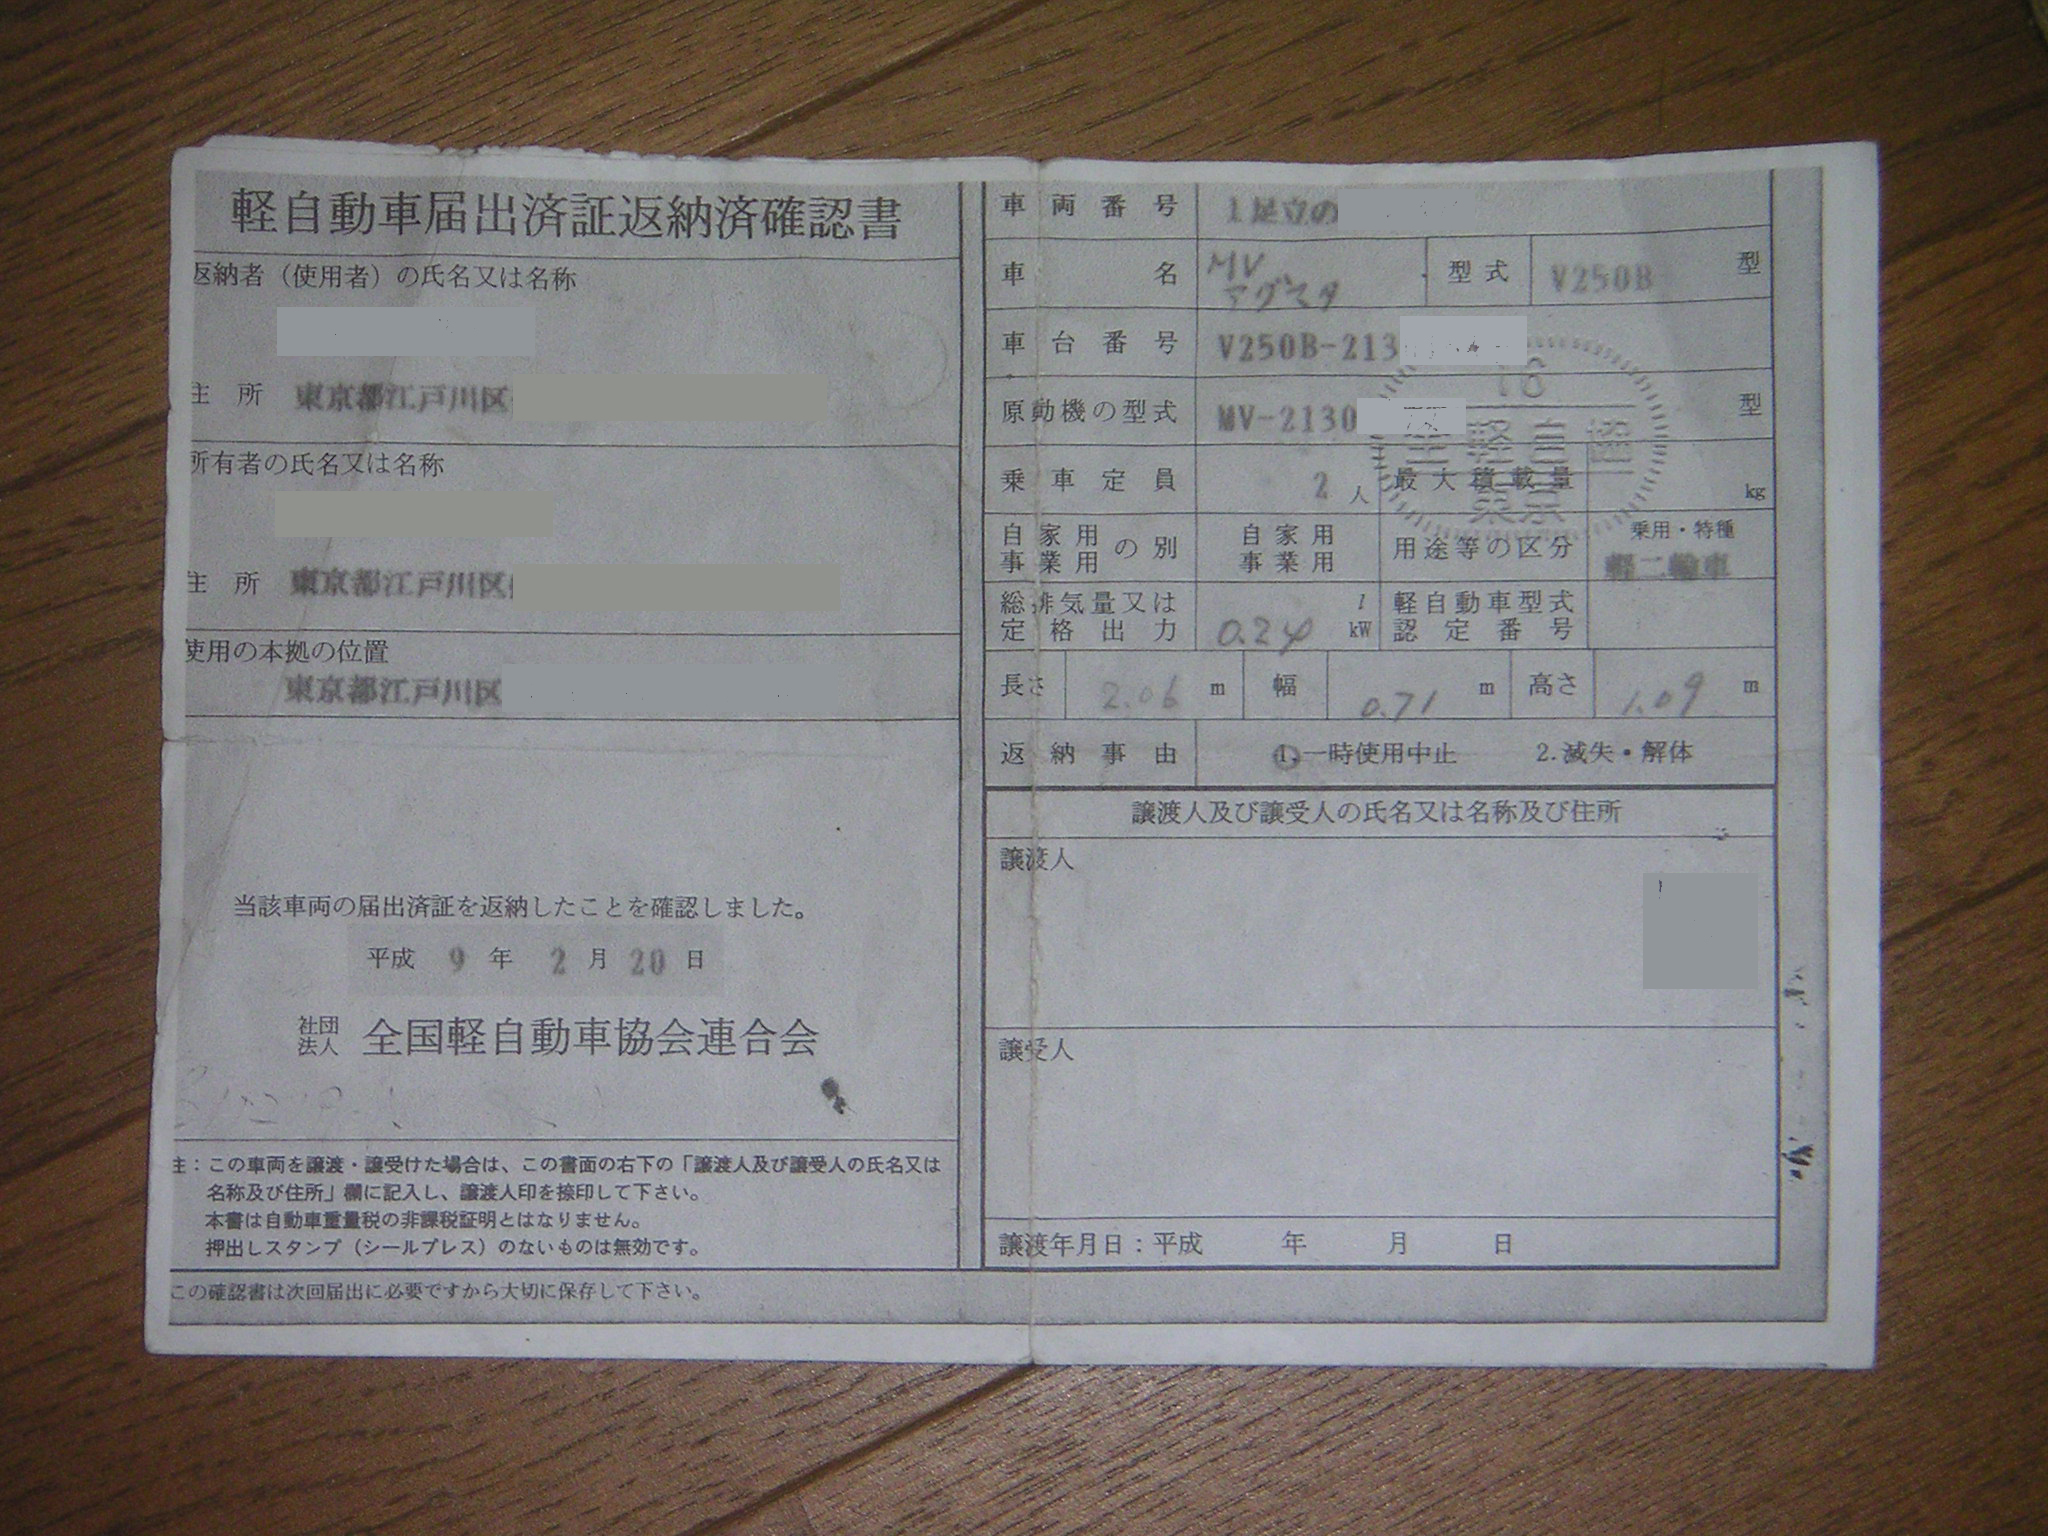 軽自動車届出済証返納済確認書
返納者（使用者）の氏名又は名称
住所 東京都江戸川区
所有者の氏名又は名称
住所 東京都江戸川区
使用の本拠の位置
東京都江戸川区
当該車両の届出済証を返納したことを確認しました。
平成 9 年 2 月 20 日
社団法人 全国軽自動車協会連合会
注：この車両を譲渡・譲受けた場合は、この書面の右下の「譲渡人及び譲受人の氏名又は
名称及び住所」欄に記入し、譲渡人印を捺印して下さい。
本書は自動車重量税の非課税証明とはなりません。
押出しスタンプ（シールプレス）のないものは無効です。
この確認書は次回届出に必要ですから大切に保存して下さい。
車両番号 1足立の
車名 MV アグスタ 型式 V250B 型
車台番号 V250B-213
原動機の型式 MV-2130 型
乗車定員 2 人 最大積載量 kg
自家用 事業用 の別 自家用 事業用 用途等の区分 乗用・特種 軽二輪車
総排気量又は定格出力 0.24 l kW 軽自動車型式認定番号
長さ 2.06 m 幅 0.71 m 高さ 1.09 m
返納事由 1.一時使用中止 2.滅失・解体
譲渡人及び譲受人の氏名又は名称及び住所
譲渡人
譲受人
譲渡年月日：平成 年 月 日
16
東京